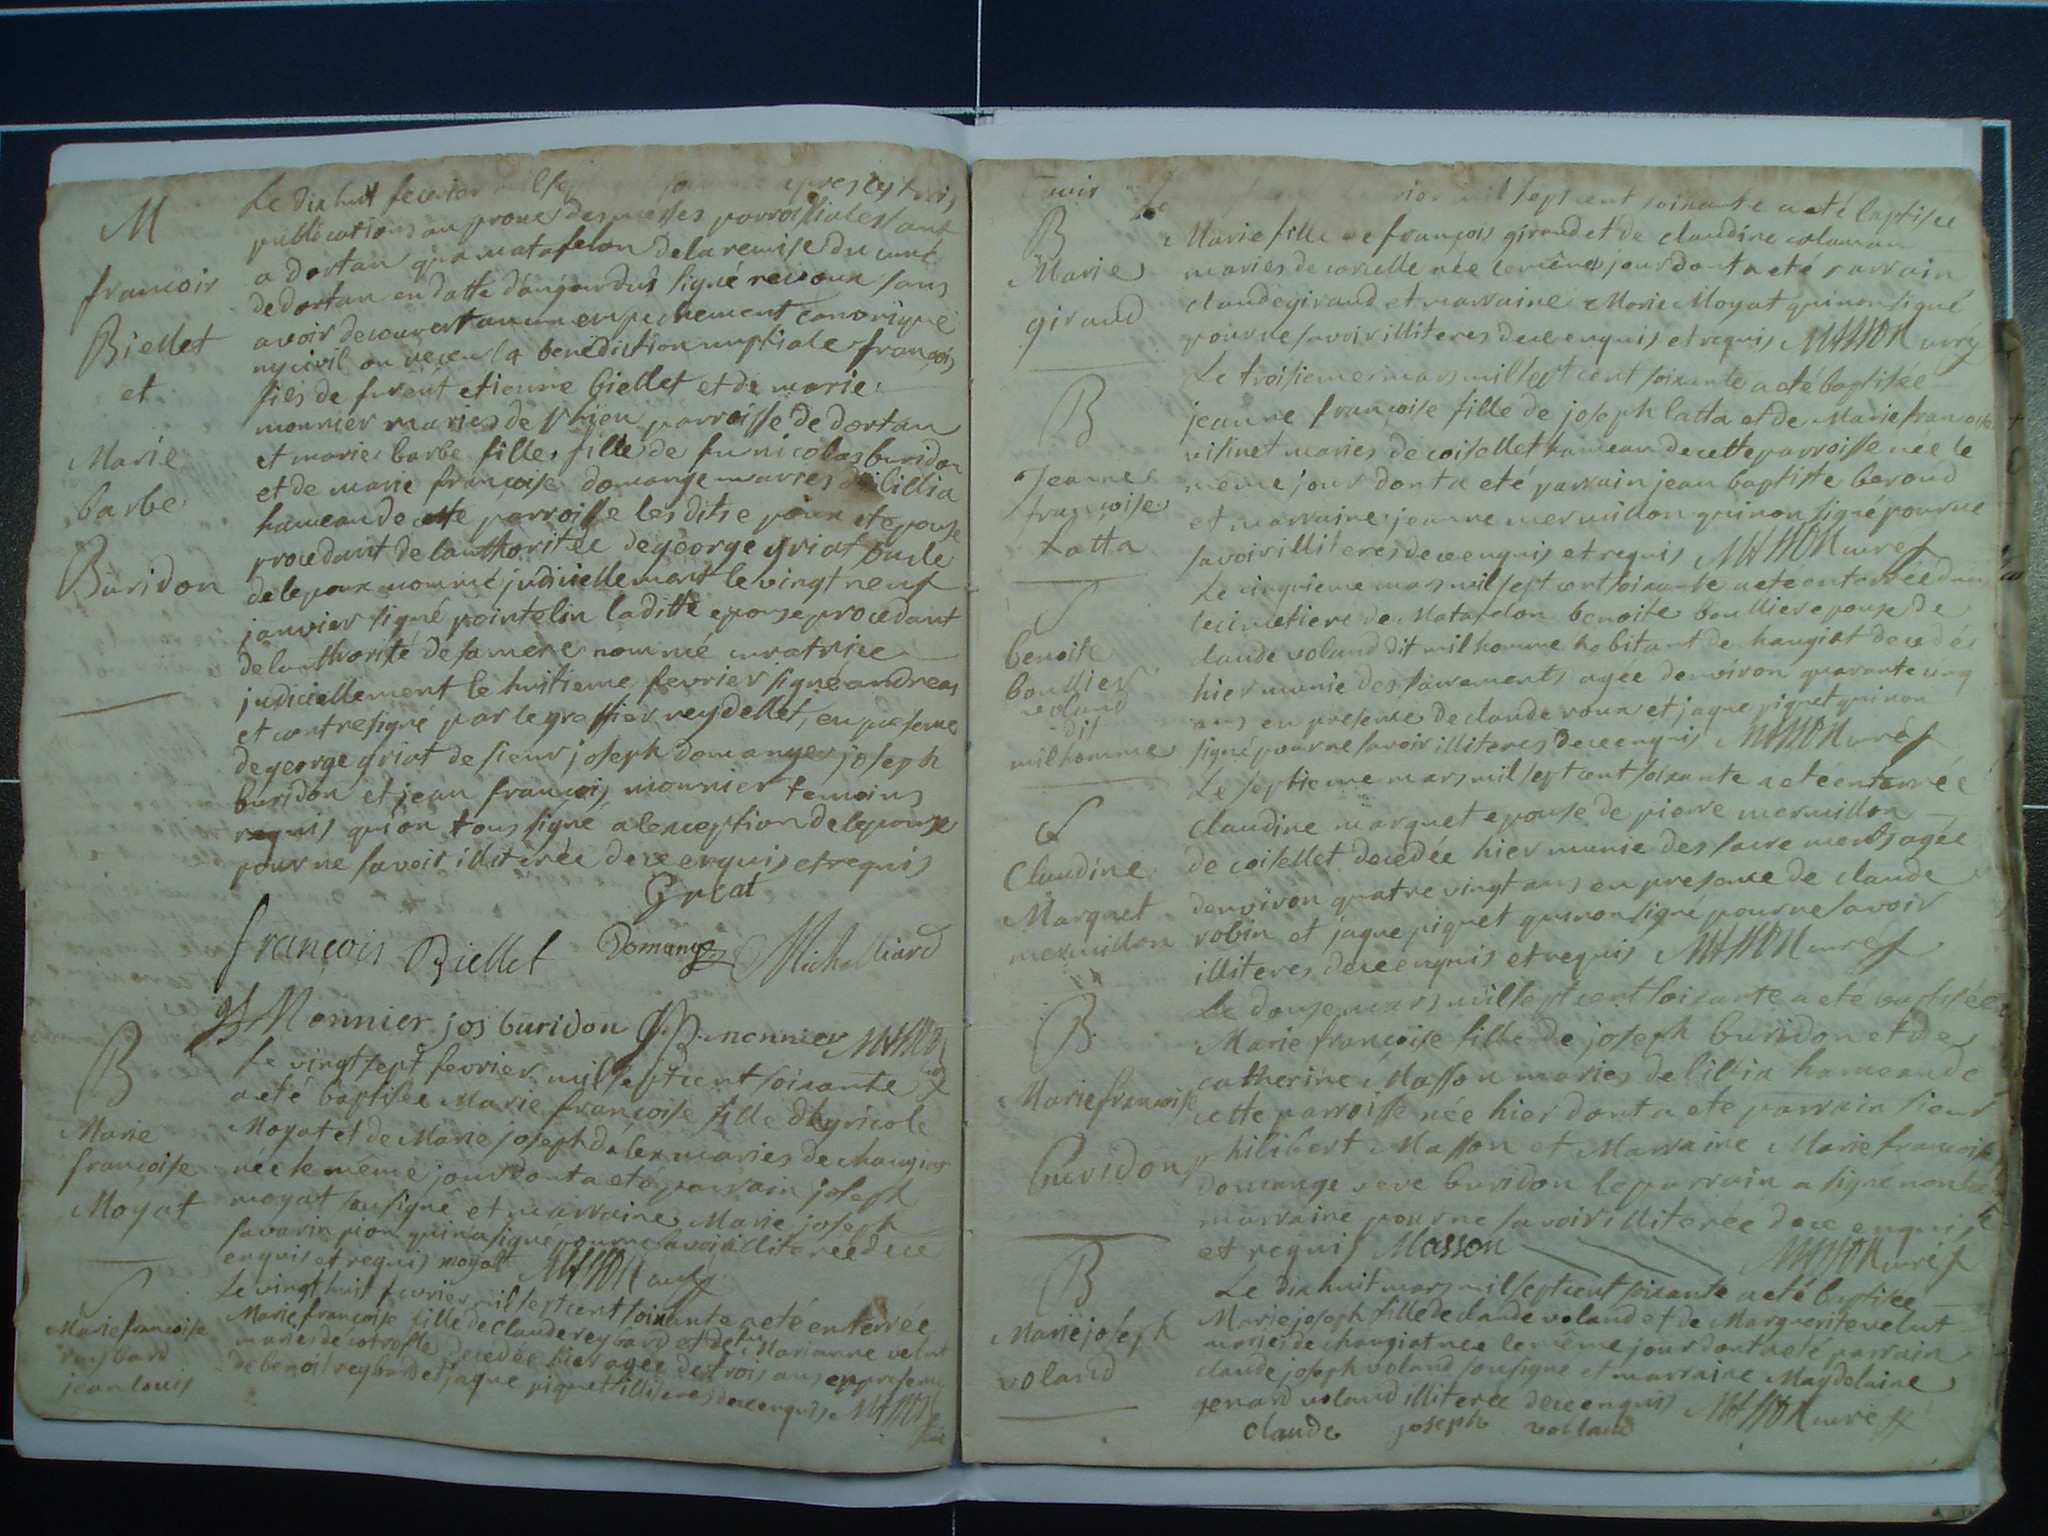 M
francoir
Biellet
et
Marie
barbe
Buridon
Le dix huit fevrier mil sept apres les trois
publications au prone des messes parroissiales tant
a dortan qu'a matafelon de la remise du curé
de dortan en datte daujourdui signé revoux sans
avoir decouvert aucun empechement canonique
ny civil on receu la benediction nuptiale francois
fils de furent etienne biellet et de marie
monnier maries de Vrieu parroisse de dortan
et marie barbe fille, fille de fu nicolas buridon
et de marie françoise domange maries de lillia
hameau de cette parroisse les dits epoux et epouse
procedant de lauthoritée de george griat oncle
de lepoux nommé judiciellement le vingt neuf
janvier signé pointelin laditte epouse procedant
de lauthorité de sa mere nommé curatrice
judiciellement le huitieme fevrier signé andreas
et contresigné par le greffier reydellet, en presence
de george griat de sieur joseph domange joseph
buridon et jean françois monnier temoins
requis qu'on tous signé a lexception de lepouse
pour ne savoir illiterée de ce enquis et requis
Griat
francois Biellet Domange Michalliard
Monnier jos buridon monnier MASSON
B
Marie
françoise
Moyat
Le vingt sept fevrier mil sept cent soixante
a eté baptisée Marie françoise fille dhyricole
Moyat et de Marie joseph dalex maries de changiat
née le même jour dont a eté parrain joseph
moyat sousigné et marraine Marie joseph
savarin pion qui n'a signé pour ne savoir illiterée de ce
enquis et requis moyat MASSON curé
S
Marie françoise
reybard
jean louis
Le vingt huit fevrier mil sept cent soixante a eté enterrée
Marie françoise fille de Claude reybard et de fu Marianne velut
maries de decedée hier agée de trois ans en presence
de benoit reybard et jaque piquet illiteres de ce enquis MASSON
curé
B
Marie
giraud
mil sept cent soixante a eté baptisée
Marie fille de françois giraud et de claudine coloman
maries de corcelle née le même jour dont a eté parrain
claude giraud et marraine Marie Moyat qui non signé
pour ne savoir illiteres de ce enquis et requis MASSON curé
B
Jeanne
françoise
Latta
Le troisieme mars mil sept cent soixante a eté baptisée
jeanne françoise fille de joseph latta et de Marie francoise
visinet maries de coisellet hameau de cette parroisse née le
même jour dont a eté parrain jean baptiste beroud
et marraine jeanne mermillon qui non signé pour ne
savoir illiteres de ce enquis et requis MASSON curé
S
benoite
boullier
voland
dit
milhomme
Le cinquieme mars mil sept cent soixante a eté enterrée dans
le cimetiere de Matafelon benoite boullier epouse de
claude voland dit milhomme habitant de hangiat decedée
hier munie des sacrements agée denviron quarante cinq
ans en presence de claude roux et jaque piquet qui non
signé pour ne savoir illiteres de ce enquis MASSON curé
S
Claudine
Marquet
mermillon
Le septieme mars mil sept cent soixante a eté enterrée
Claudine marquet epouse de pierre mermillon
de coisellet decedée hier munie des sacrements agée
denviron quatre vingt ans en presence de claude
robin et jaque piquet qui non signé pour ne savoir
illiteres de ce enquis et requis MASSON curé
B
Marie francoise
Buridon
Le douse mars mil sept cent soixante a eté baptisée
Marie françoise fille de joseph buridon et de
catherine Masson maries de lillia hameau de
cette parroisse née hier dont a eté parrain sieur
philibert Masson et Marraine Marie francoise
domange veve buridon le parrain a signé non la
marraine pour ne savoir illiterée de ce enquis
et requis Masson MASSON curé
B
Marie joseph
voland
Le dix huit mars mil sept cent soixante a eté baptisée
Marie joseph fille de claude voland et de Marguerite velut
maries de changiat née le même jour dont a eté parrain
claude joseph voland sousigné et marraine Magdelaine
genard voland illiterée de ce enquis MASSON curé
claude joseph volland